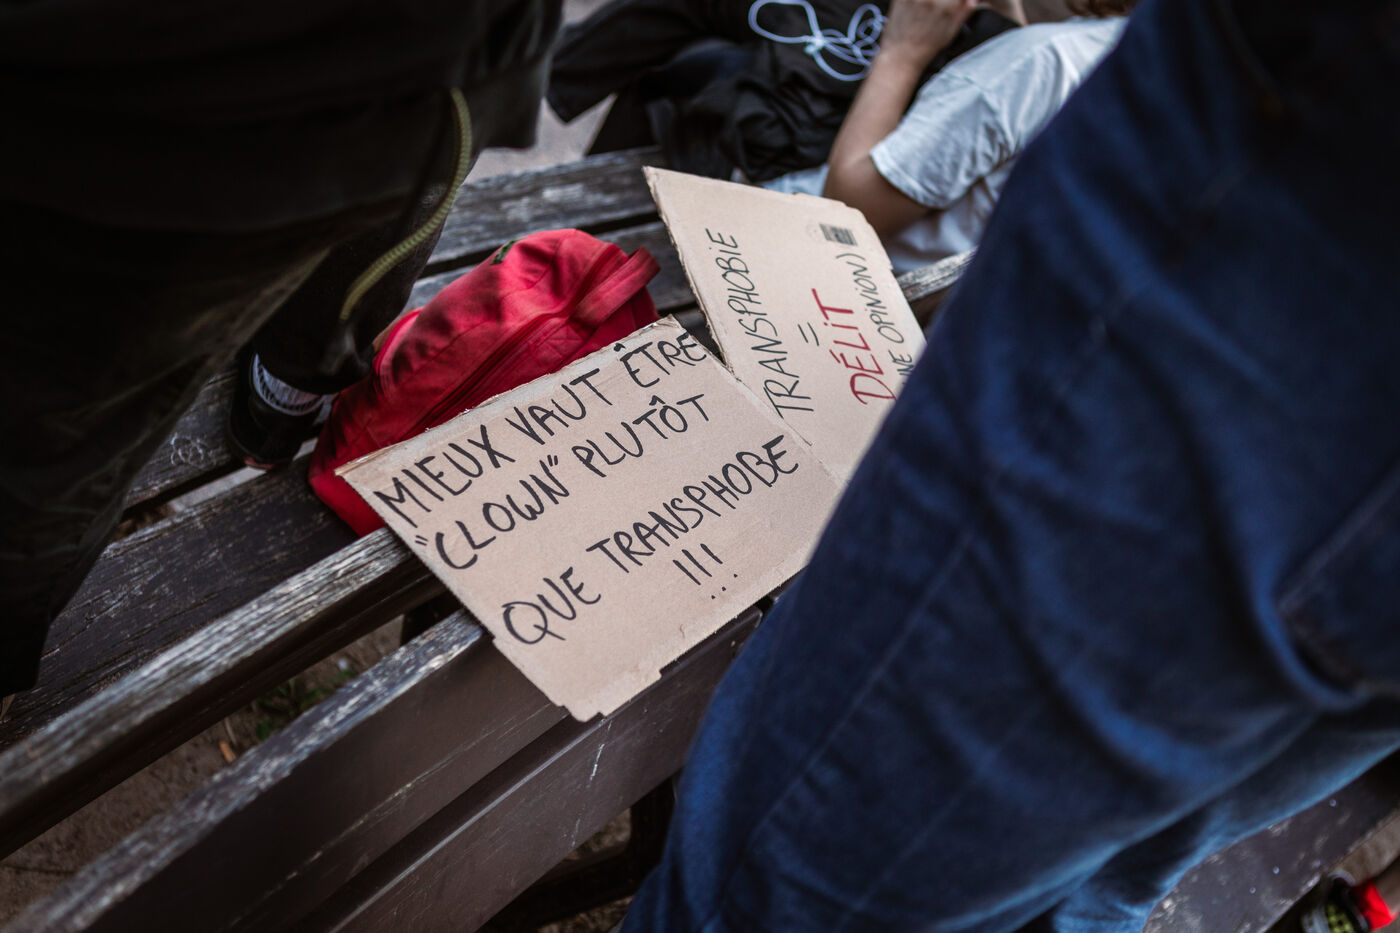 MIEUX VAUT ÊTRE
"CLOWN" PLUTÔT
QUE TRANSPHOBE
!!!...
TRANSPHOBIE
=
DÉLIT
OPINION)